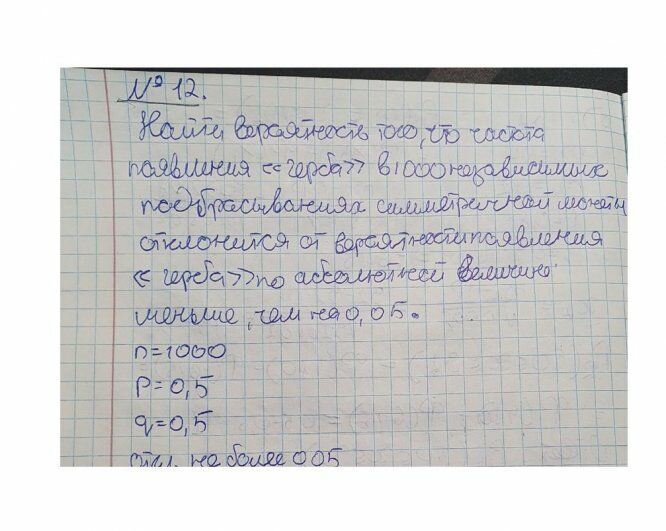 № 12.
Найти вероятность того, что частота
появления «герба» в 1000 независимых
подбрасываниях симметричной монеты
отклонится от вероятности появления
«герба» по абсолютной величине
меньше, чем на 0,05.
n=1000
P=0,5
q=0,5
откл. не более 0,05